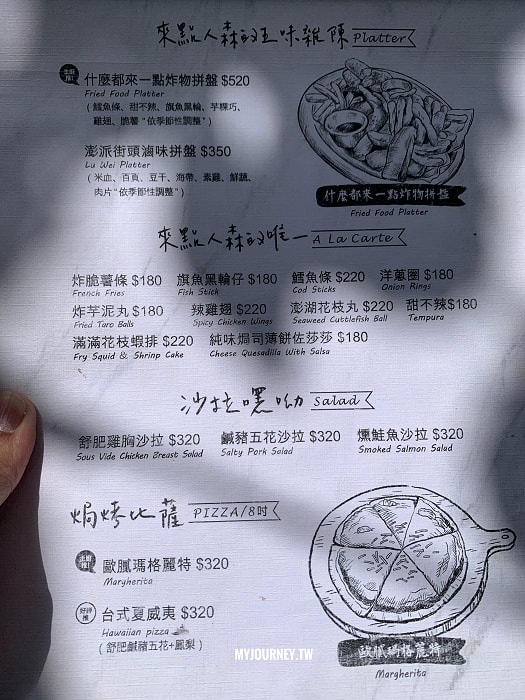 來點人森的五味雜陳 Platter
主廚推!
什麼都來一點炸物拼盤 $520
Fried Food Platter
(鱈魚條、甜不辣、旗魚黑輪、芋粿巧、
雞翅、脆薯"依季節性調整")
澎派街頭滷味拼盤 $350
Lu Wei Platter
(米血、百頁、豆干、海帶、素雞、鮮蔬、
肉片"依季節性調整")
什麼都來一點炸物拼盤
Fried Food Platter
來點人森的唯一 A La Carte
炸脆薯條 $180 旗魚黑輪仔 $180 鱈魚條 $220 洋蔥圈 $180
French Fries Fish Stick Cod Sticks Onion Rings
炸芋泥丸 $180 辣雞翅 $220 澎湖花枝丸 $220 甜不辣$180
Fried Taro Balls Spicy Chicken Wings Seaweed Cuttlefish Ball Tempura
滿滿花枝蝦排 $220 純味焗司薄餅佐莎莎 $180
Fry Squid & Shrinp Cake Cheese Quesadilla With Salsa
沙拉嘿呦 Salad
舒肥雞胸沙拉 $320 鹹豬五花沙拉 $320 燻鮭魚沙拉 $320
Sous Vide Chicken Breast Salad Salty Pork Salad Smoked Salmon Salad
焗烤比薩 PIZZA/8吋
主廚推!
歐膩瑪格麗特 $320
Margherita
好評推
台式夏威夷 $320
Hawaiian pizza
(舒肥鹹豬五花+鳳梨)
歐膩瑪格麗特
Margherita
MYJOURNEY.TW